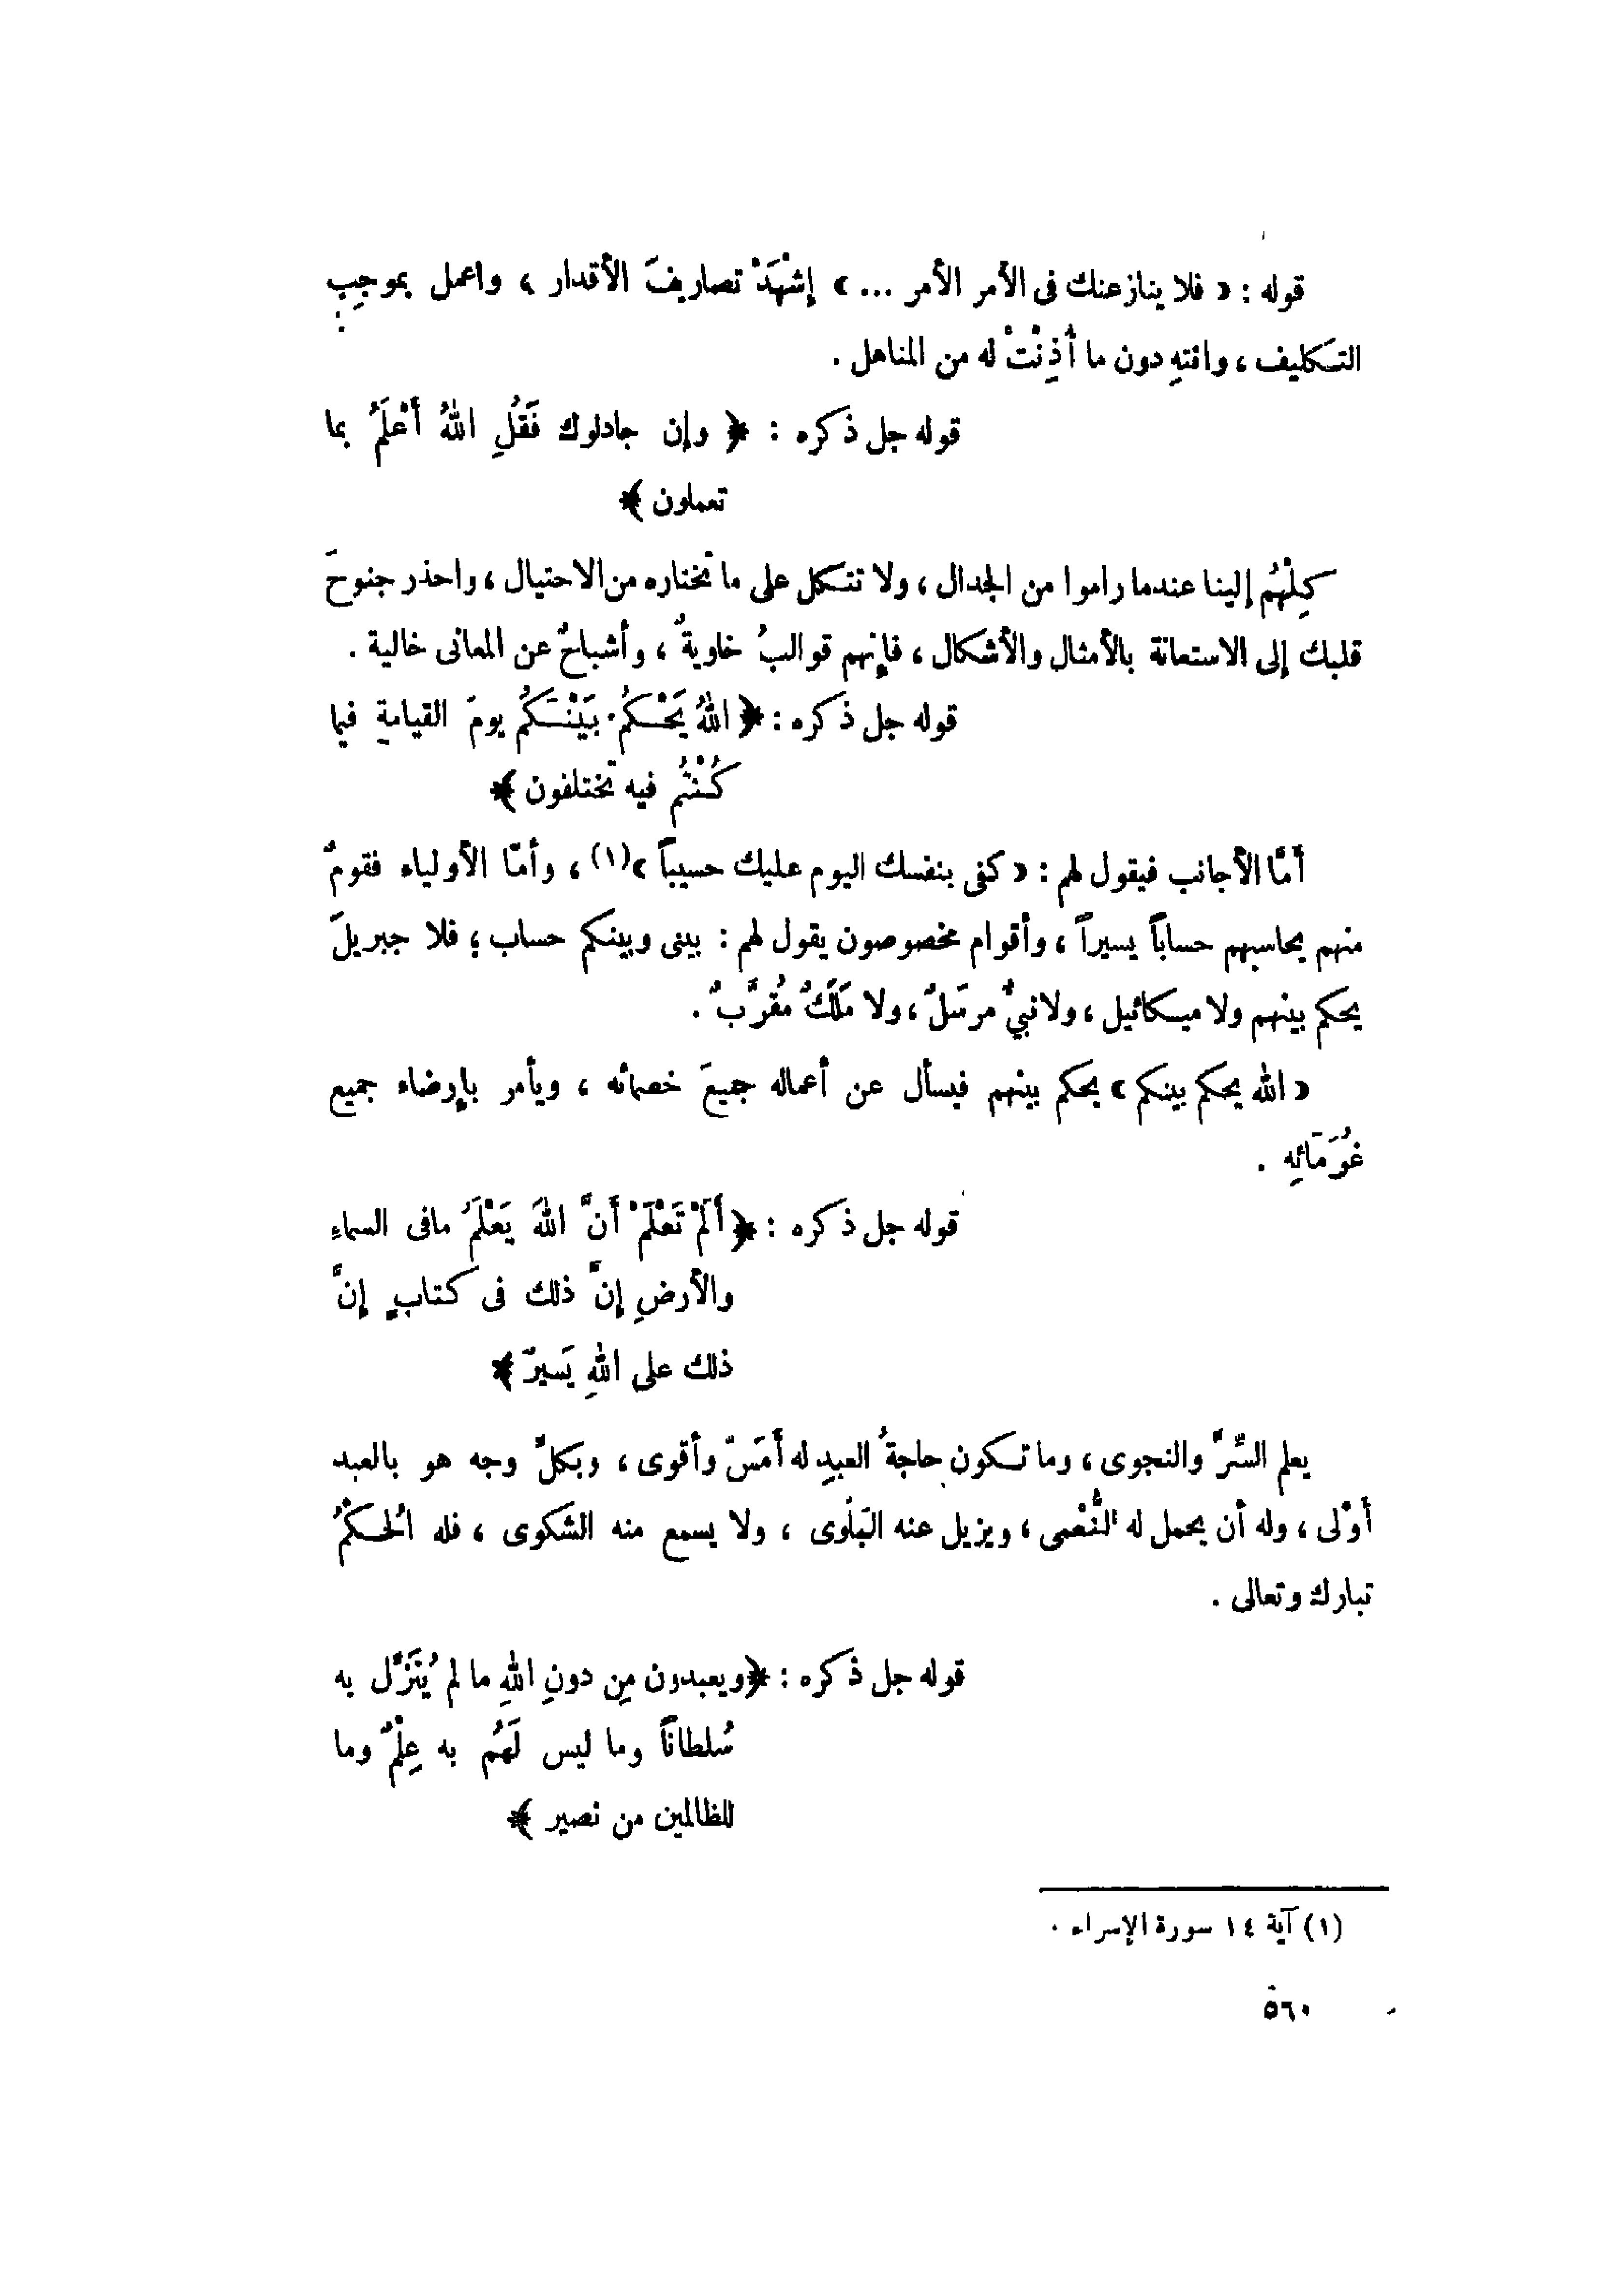 قوله : « فلا ينازعنك فى الأمر الأمر ... » إشْهَدْ تصاريفَ الأقدار ، واعمل بموجِبِ
التكليف ، وانتهِ دون ما أُذِنْتْ له من المناهل .
قوله جل ذكره : ﴿ وإن جادلوك فَقُلِ اللهُ أَعْلَمُ بما
تعملون ﴾
كِلْهُم إلينا عندما راموا من الجدال ، ولا تتكل على ما تختاره من الاحتيال ، واحذر جنوحَ
قلبك إلى الاستعانة بالأمثال والأشكال ، فإنهم قوالبُ خاويةٌ ، وأشباحٌ عن المعانى خالية .
قوله جل ذكره : ﴿ اللهُ يَحْكُمُ بَيْنَكُم يومَ القيامةِ فيما
كُنْتُم فيه تختلفون ﴾
أمَّا الأجانب فيقول لهم : « كفى بنفسك اليوم عليك حسيباً »(١) ، وأمّا الأولياء فقومٌ
منهم يحاسبهم حساباً يسيراً ، وأقوام مخصوصون يقول لهم : بينى وبينكم حساب ؛ فلا جبريلَ
يحكم بينهم ولا ميكائيل ، ولا نبيٌ مرسَلٌ ، ولا مَلَكٌ مُقَرَّبٌ .
« الله يحكم بينكم » يحكم بينهم فيسأل عن أعماله جميعَ خصمائه ، ويأمر بإرضاء جميع
غُرَمَائِهِ .
قوله جل ذكره : ﴿ أَلَمْ تَعْلَمْ أنَّ اللهَ يَعْلَمُ مافى السماءِ
والأرضِ إنَّ ذلك فى كتابٍ إنَّ
ذلك على اللهِ يَسيرٌ ﴾
يعلم السِّرَّ والنجوى ، وما تكون حاجةُ العبدِ له أمَسّ وأقوى ، وبكلِّ وجه هو بالعبد
أوْلى ، وله أن يحمل له النُّعْمى ، ويزيل عنه البَلْوى ، ولا يسمع منه الشكوى ، فله الُحكْمُ
تبارك وتعالى .
قوله جل ذكره : ﴿ ويعبدون مِن دونِ اللهِ ما لم يُنَزِّل به
سُلطاناً وما ليس لَهُم به عِلْمٌ وما
للظالمين من نصير ﴾
(١) آية ١٤ سورة الإسراء .
٥٦٠